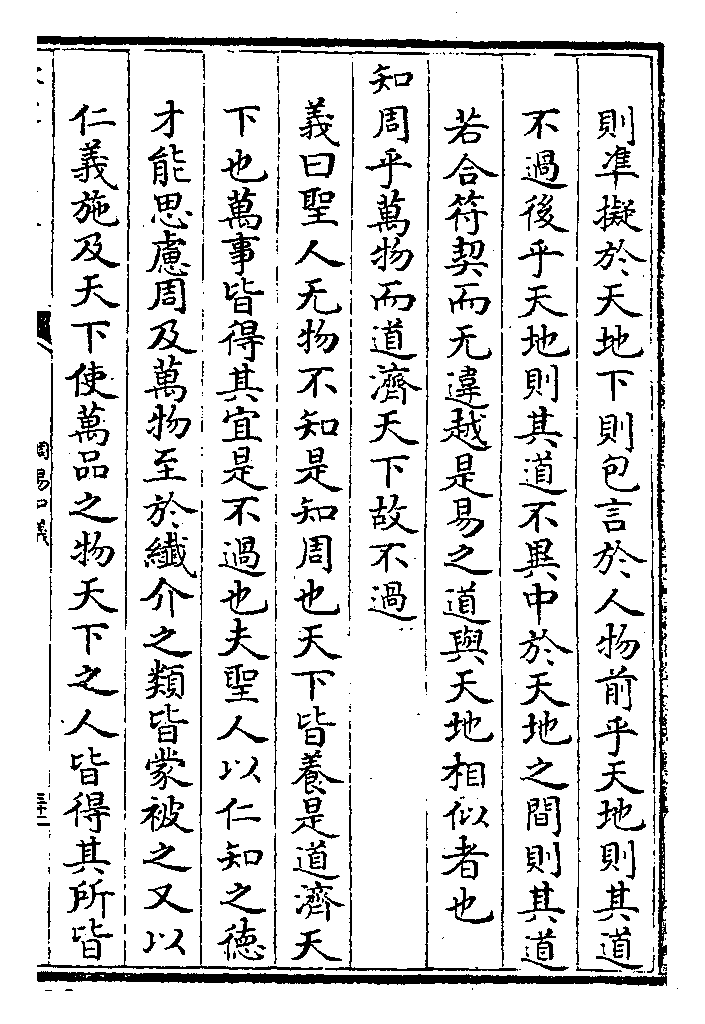 則準擬於天地下則包言於人物前乎天地則其道
不過後乎天地則其道不異中於天地之間則其道
若合符契而无違越是易之道與天地相似者也
知周乎萬物而道濟天下故不過
義曰聖人无物不知是知周也天下皆養是道濟天
下也萬事皆得其宜是不過也夫聖人以仁知之德
才能思慮周及萬物至於纖介之類皆蒙被之又以
仁義施及天下使萬品之物天下之人皆得其所皆
周易口義